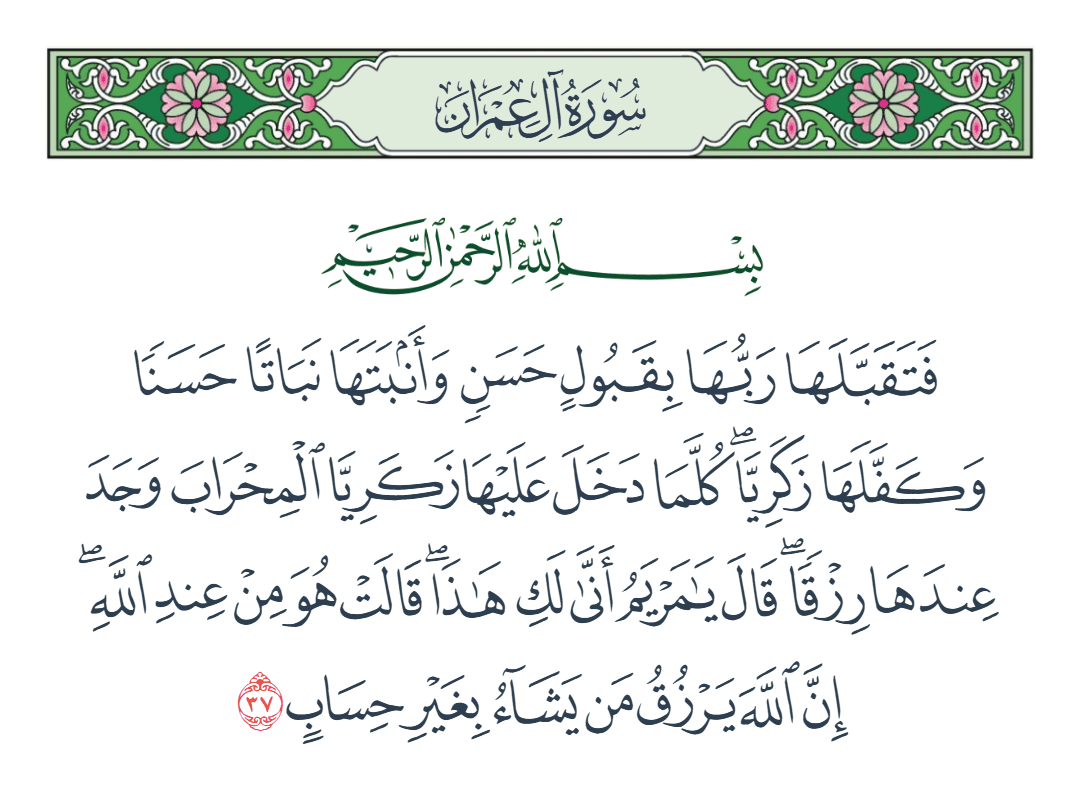 سُورَةُ آلِ عِمْرَان
بِسْمِ ٱللَّهِ ٱلرَّحْمَٰنِ ٱلرَّحِيمِ
فَتَقَبَّلَهَا رَبُّهَا بِقَبُولٍ حَسَنٍ وَأَنۢبَتَهَا نَبَاتًا حَسَنًا
وَكَفَّلَهَا زَكَرِيَّاۖ كُلَّمَا دَخَلَ عَلَيْهَا زَكَرِيَّا ٱلْمِحْرَابَ وَجَدَ
عِندَهَا رِزْقًاۖ قَالَ يَٰمَرْيَمُ أَنَّىٰ لَكِ هَٰذَاۖ قَالَتْ هُوَ مِنْ عِندِ ٱللَّهِۖ
إِنَّ ٱللَّهَ يَرْزُقُ مَن يَشَآءُ بِغَيْرِ حِسَابٍ ٣٧